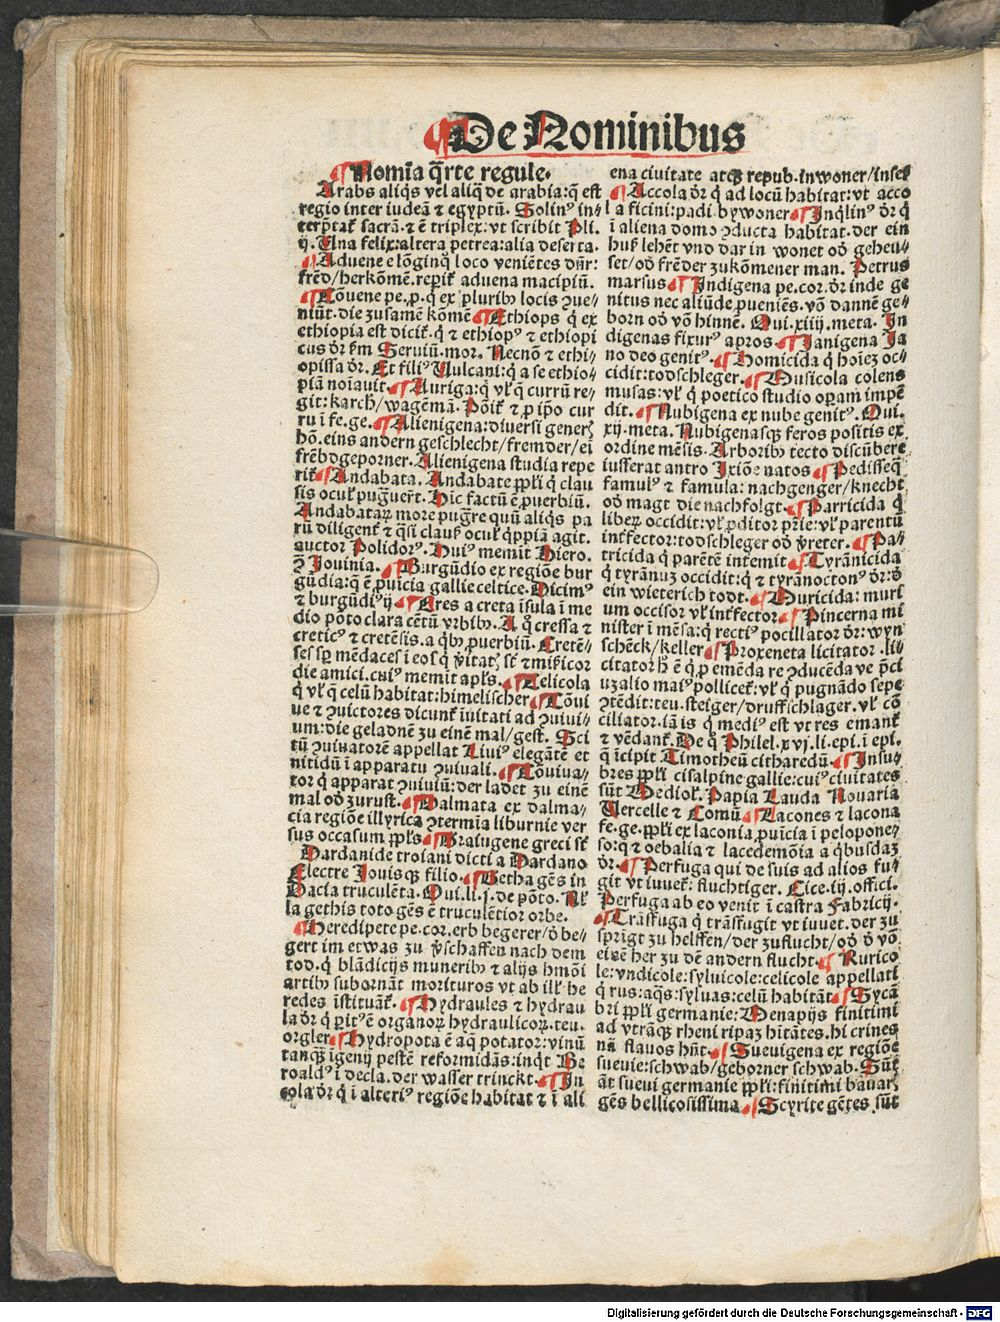 De Nominibus
Nomīa q̄rte regule.
Arabs aliq̄s vel aliq̄ de arabia: q̄ est
regio inter iudeā ⁊ egyptū. Solinꝰ in⸗
terp̄tat̄ sacrā. ⁊ ē triplex: vt scribit Pli.
ij. Una felix: altera petrea: alia deserta.
Aduene e lōginq̄ loco veniētes dn̄r:
frēd/herkōmē. reperit̄ aduena macipiū.
Cōuene pe. p. q̄ ex pluribꝰ locis ꝯue⸗
niūt. die zusamē kōmē Ethiops q̄ ex
ethiopia est dicit̄. q̄ ⁊ ethiopꝰ ⁊ ethiopi
cus dr̄ s̄m Seruiū. mor. Necnō ⁊ ethi⸗
opissa dr̄. Et filiꝰ Vulcani: q̄ a se ethio⸗
piā noīauit. Auriga: q̄ vl̓ q̄ currū re⸗
git: karch/wagēmā. Pōit̄ ⁊ ꝓ ip̄o cur
ru ī fe. ge. Alienigena: diuersi generꝭ
hō. eins andern geschlecht/fremder/ei
frēbdgeporner. Alienigena studia repe
rit̄ Andabata. Andabate ppl̓i q̄ clau
sis ocul̓ puguer̄t. Hic factū ē ꝓuerbiū.
Andabataꝝ more pugr̄e quū aliq̄s pa
rū diligent̄ ⁊ q̄si clauſ̓ ocul̓ q̄ppiā agit.
auctor Polidorꝰ. Huiꝰ memīt Hiero.
ꝯ̄ Jouinia. Burgūdio ex regiōe bur
gūdia: q̄ ē ꝓuīcia gallie celtice. Dicimꝰ
⁊ burgūdiꝰ ij Cres a creta īsula ī me
dio pōto clara cētū vrbibꝰ. A q̄ cressa ⁊
creticꝰ ⁊ cretēsis. a q̄bꝰ ꝓuerbiū. Cretē⸗
ses sp̄ mēdaces ī eos q̄ v̄itat̄ sī̄t ⁊ mis̄icor
die amici. cuiꝰ memīt apl̓s. Celicola
q̄ vl̓ q̄ celū habitat: himelischer Cōui
ue ⁊ ꝯuictores dicunt̄ īuitati ad ꝯuiui⸗
um: die geladnē zu einē mal/gest. Sci
tū ꝯuiuatorē appellat Liuiꝰ elegātē et
nitidū ī apparatu ꝯuiuali. Cōuiua⸗
tor q̄ apparat ꝯuiuiū: der ladet zu einē
mal od̓ zurust. Dalmata ex dalma⸗
cia regiōe illyrica ꝯtermīa liburnie ver
sus occasum ppl̓s Graiugene greci sūt
Dardanide troiani dicti a Dardano
Electre Jouisqꝫ filio. Getha gēs in
Dacia truculēta. Oui. ll. j. de pōto. Ul̓
la gethis toto gēs ē truculētior orbe.
Heredipete pe. cor. erb begerer/d̓ be⸗
gert im etwas zu v̓schaffen nach dem
tod. q̄ blādicijs muneribꝰ ⁊ alijs hmōi
artibꝰ subornāt morituros vt ab ill̓ he
redes īstituāt̄. Hydraules ⁊ hydrau
la dr̄ q̄ ꝑitꝰ ē organoꝝ hydraulicoꝝ. teu.
orgler Hydropota ē aq̄ potator: vinū
tanqꝫ īgenij pestē reformidās: inqt̄ Be
roaldꝰ ī decla. der wasser trinckt. In
cola dr̄ q̄ ī alteriꝰ regiōe habitat ⁊ ī ali
ena ciuitate atqꝫ repub. inwoner/insel
Accola dr̄ q̄ ad locū habitat: vt acco
la ficini: padi. bywoner Inq̄linꝰ dr̄ q̄
ī aliena domo ꝯducta habitat. der ein
huß lehēt vnd dar in wonet od̓ geheu⸗
set/od̓ frēder zukōmener man. Petrus
marsus Indigena pe. cor. dr̄ inde ge
nitus nec aliūde ꝓueniēs. vō dannē ge⸗
born od̓ vō hinnē. Oui. xiiij. meta. In
digenas fixurꝰ apros. Janigena Ja
no deo genitꝰ. Homicida q̄ hoīeꝫ oc⸗
cidit: todschleger. Musicola colens
musas: vl̓ q̄ poetico studio oꝑam impē
dit. Nubigena ex nube genitꝰ. Oui.
xij. meta. Nubigenasqꝫ feros positis ex
ordine mēsis. Arboribꝰ tecto discūbere
iusserat antro Ixiōe natos Pedisseq̄
famulꝰ ⁊ famula: nachgenger/knecht
od̓ magt die nachfolgt. Parricida q̄
liberꝝ occidit: vl̓ ꝓditor p̄rie: vl̓ parentū
int̄fector: todschleger od̓ v̓reter. Pa⸗
tricida q̄ parētē intemit Tyrānicida
q̄ tyrānuꝫ occidit: q̄ ⁊ tyrānoctonꝰ dr̄: d̓
ein wieterich todt. Muricida: muri
um occisor vl̓ int̄fector Pincerna mi
nister ī mēsa: q̄ rectiꝰ pocillator dr̄: wyn
schēck/keller Proxeneta licitator. li⸗
citator h̄ ē q̄ ꝓ emēda re ꝯducēda ve p̄ci
uꝫ alio maiꝰ pollicet̄: vl̓ q̄ pugnādo sepe
ꝯtēdit: teu. steiger/druffschlager. vl̓ cō
ciliator. iā is q̄ mediꝰ est vt res emant̄
⁊ vēdant̄. De q̄ Philel. xvj. li. epi. ī epl̓.
q̄ īcipit Timotheū citharedū. Insu⸗
bres ppl̓i cisalpine gallie: cuiꝰ ciuitates
sūt Mediol̓. Papia Lauda Nouaria
Vercelle ⁊ Comū Lacones ⁊ lacona
fe. ge. ppl̓i ex laconia ꝓuīcia ī peloponeꝭ
so: q̄ ⁊ oebalia ⁊ lacedemōia a q̄busdaꝫ
dr̄. Perfuga qui de suis ad alios fu⸗
git vt iuuet̄: fluchtiger. Cice. iij. offici.
Perfuga ab eo venit ī castra Fabricij.
Trāsfuga q̄ trāsfugit vt iuuet. der zu
sprīgt zu helffen/der zuflucht/od̓ d̓ vō
einē her zu dē andern flucht. Rurico
le: vndicole: syluicole: celicole appellati
q̄ rus: aq̄s: syluas: celū habitāt Sycā
bri ppl̓i germanie: Menapijs finitimi
ad vtrāqꝫ rheni ripaꝫ hītātes. hi crines
nā flauos hn̄t. Sueuigena ex regiōe
sueuie: schwab/geborner schwab. Sūt
āt sueui germanie ppl̓i: finitimi bauarꝭ
gēs bellicosissima. Scyrite gētes sūt
Digitalisierung gefördert durch die Deutsche Forschungsgemeinschaft - DFG